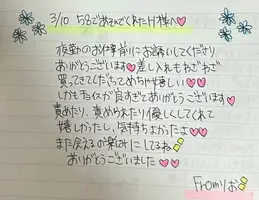 3/10 58であそんでくれたH様へ♡
夜勤のお仕事前にお誘いしてくださり
ありがとうございます♡差し入れもわざわざ
買ってきてくださってめちゃ嬉しい♡♡
しかもチョイスが良すぎてありがとうございます♡
責めたり、責められたり優しくしてくれて
嬉しかたし、気持ちよかたよ♡♡
また会えるの楽しみにしてるね
ありがとうございました♡♡
Fromりお